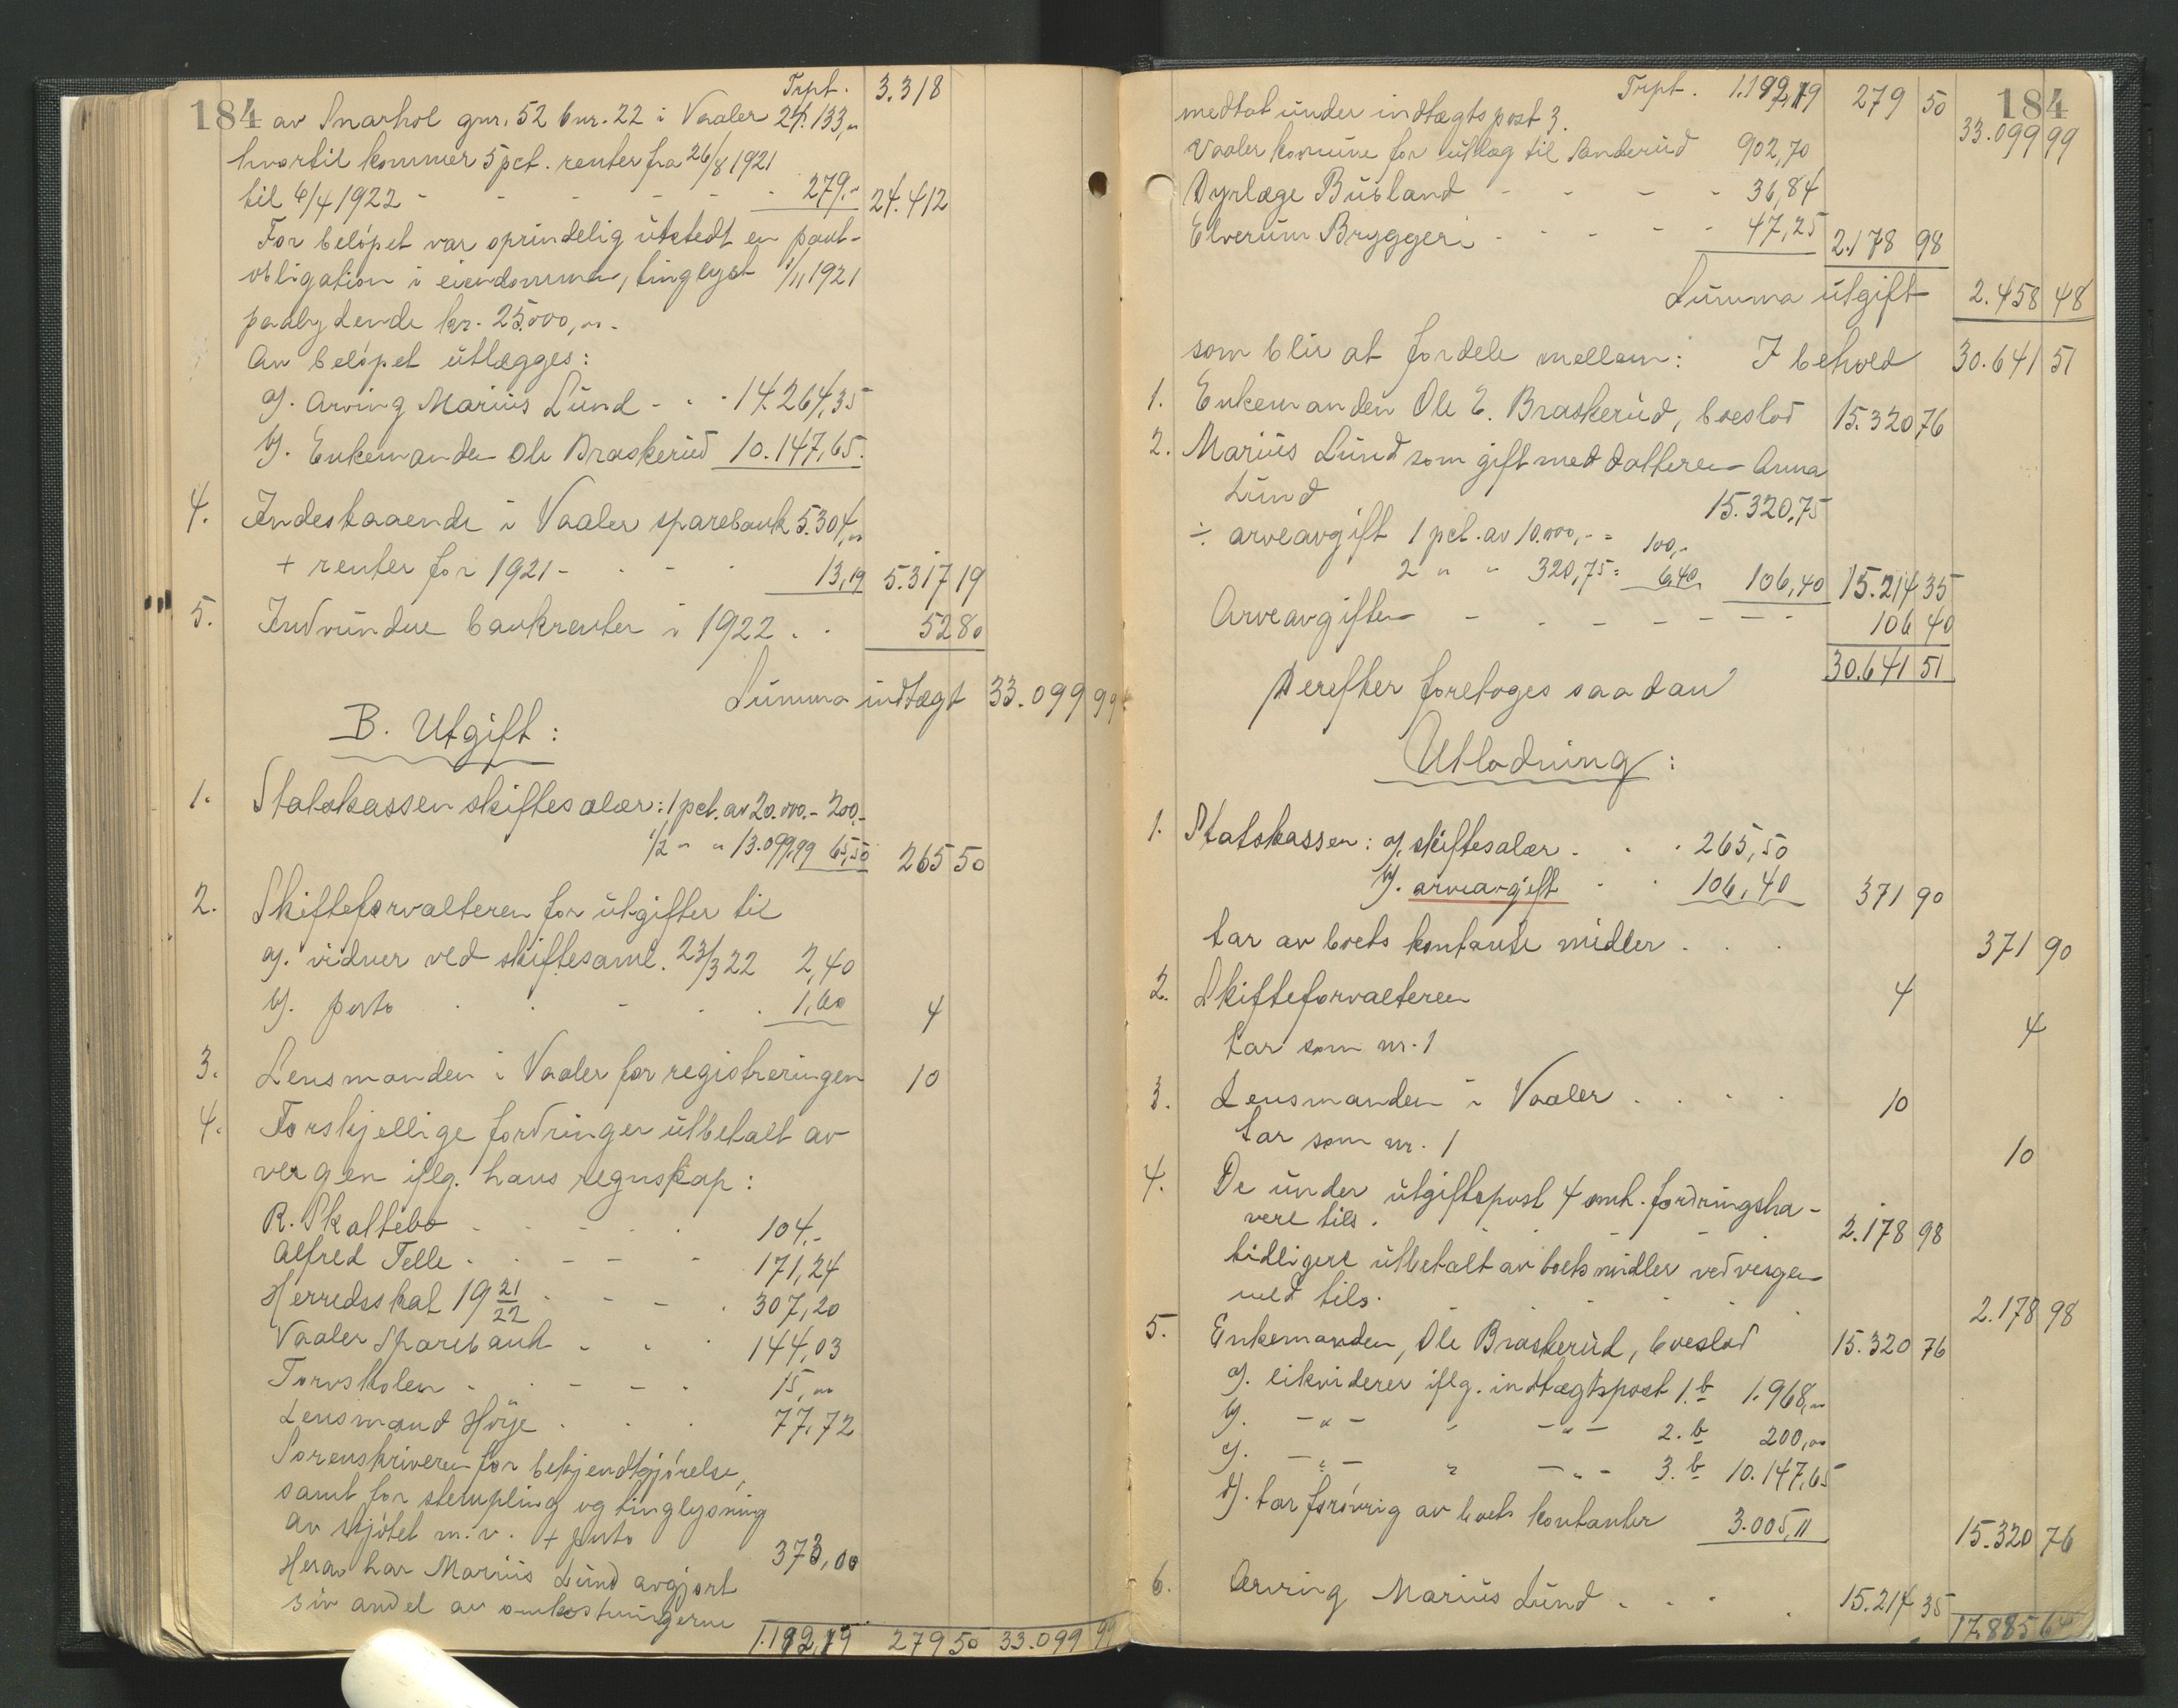 Trpt. 3.318
184 av Snarhol gnr. 52 bnr. 22 i Vaaler 24.133,-
hvortil kommer 5 pct. renter fra 26/8 1921
til 6/4 1922 - - - - - - 279.- 24.412
For beløpet var oprindelig utstedt en pant-
obligation i eiendommen, tinglyst 1/11 1921
paalydende kr. 25.000,-.
Av beløpet utlægges:
a). Arving Marius Lund - - - 14.264,35
b). Enkemanden Ole Braskerud 10.147,65.
4. Indestaaende i Vaaler sparebank 5.304,-
+ renter for 1921 - - - - 13,19 5.317 19
5. Indvundne bankrenter i 1922 . . 52 80
Summa indtægt 33.099 99
B. Utgift:
1. Statskassen skiftesalær: 1 pct. av 20.000.- 200.-
1/2 " " 13.099,99 65,50 265 50
2. Skifteforvalteren for utgifter til
a). vidner ved skiftesaml. 23/3 22 2,40
b). porto . . - . . 1,60 4
3. Lensmanden i Vaaler for registreringen 10
4. Forskjellige fordringer utbetalt av
vergen iflg. hans regnskap:
R. Skaltebo - - - - - 104.-
Alfred Telle - - - - - 171,24
Herredsskat 19 21/22 - - - . 307,20
Vaaler Sparebank - - - 144,03
Torvskolen - - - - - 15,-
Lensmand Høye . . . 77,72
Sorenskriveren for bekjendtgjørelse,
samt for stempling og tinglysning
av skjøtet m.v. + porto 373,00
Herav har Marius Lund avgjort
sin andel av omkostningerne
1.192,19 279 50 33.099 99
Trpt. 1.192,19 279 50 184
medtat under indtægtspost 3. 33.099 99
Vaaler komune for utlæg til Sanderud 902,70
Dyrlæge Busland - - - - 36,84
Elverum Bryggeri - - - - - 47,25 2.178 98
Summa utgift 2.458 48
som blir at fordele mellem: I behold 30.641 51
1. Enkemanden Ole E. Braskerud, boeslod 15.320 76
2. Marius Lund som gift med datteren Anna
Lund 15.320,75
÷ arveavgift 1 pct. av 10.000,- = 100,-
2 " " 320,75 = 6,40 106,40 15.214 35
Arveavgiften - - - - - - - 106 40
30.641 51
Derefter foretoges saadan
Utlodning:
1. Statskassen: a). skiftesalær . . . 265,50
b). arveavgift . . 106,40 371 90
tar av boets kontante midler . . . 371 90
2. Skifteforvalteren 4
tar som nr. 1 4
3. Lensmanden i Vaaler . . . . 10
tar som nr. 1 10
4. De under utgiftspost 4 omh. fordringsha-
vere tils. 2.178 98
tidligere utbetalt av boets midler ved vergen
med tils. 2.178 98
5. Enkemanden, Ole Braskerud, boeslod 15.320 76
a). likviderer iflg. indtægtspost 1.b 1.968,-
b). - " - " - " - 2.b 200,00
c). - " - " - " - 3.b 10.147,65
d). tar forøvrig av boets kontanter 3.005,11 15.320 76
6. Arving Marius Lund - - - . 15.214 35
17.885 64